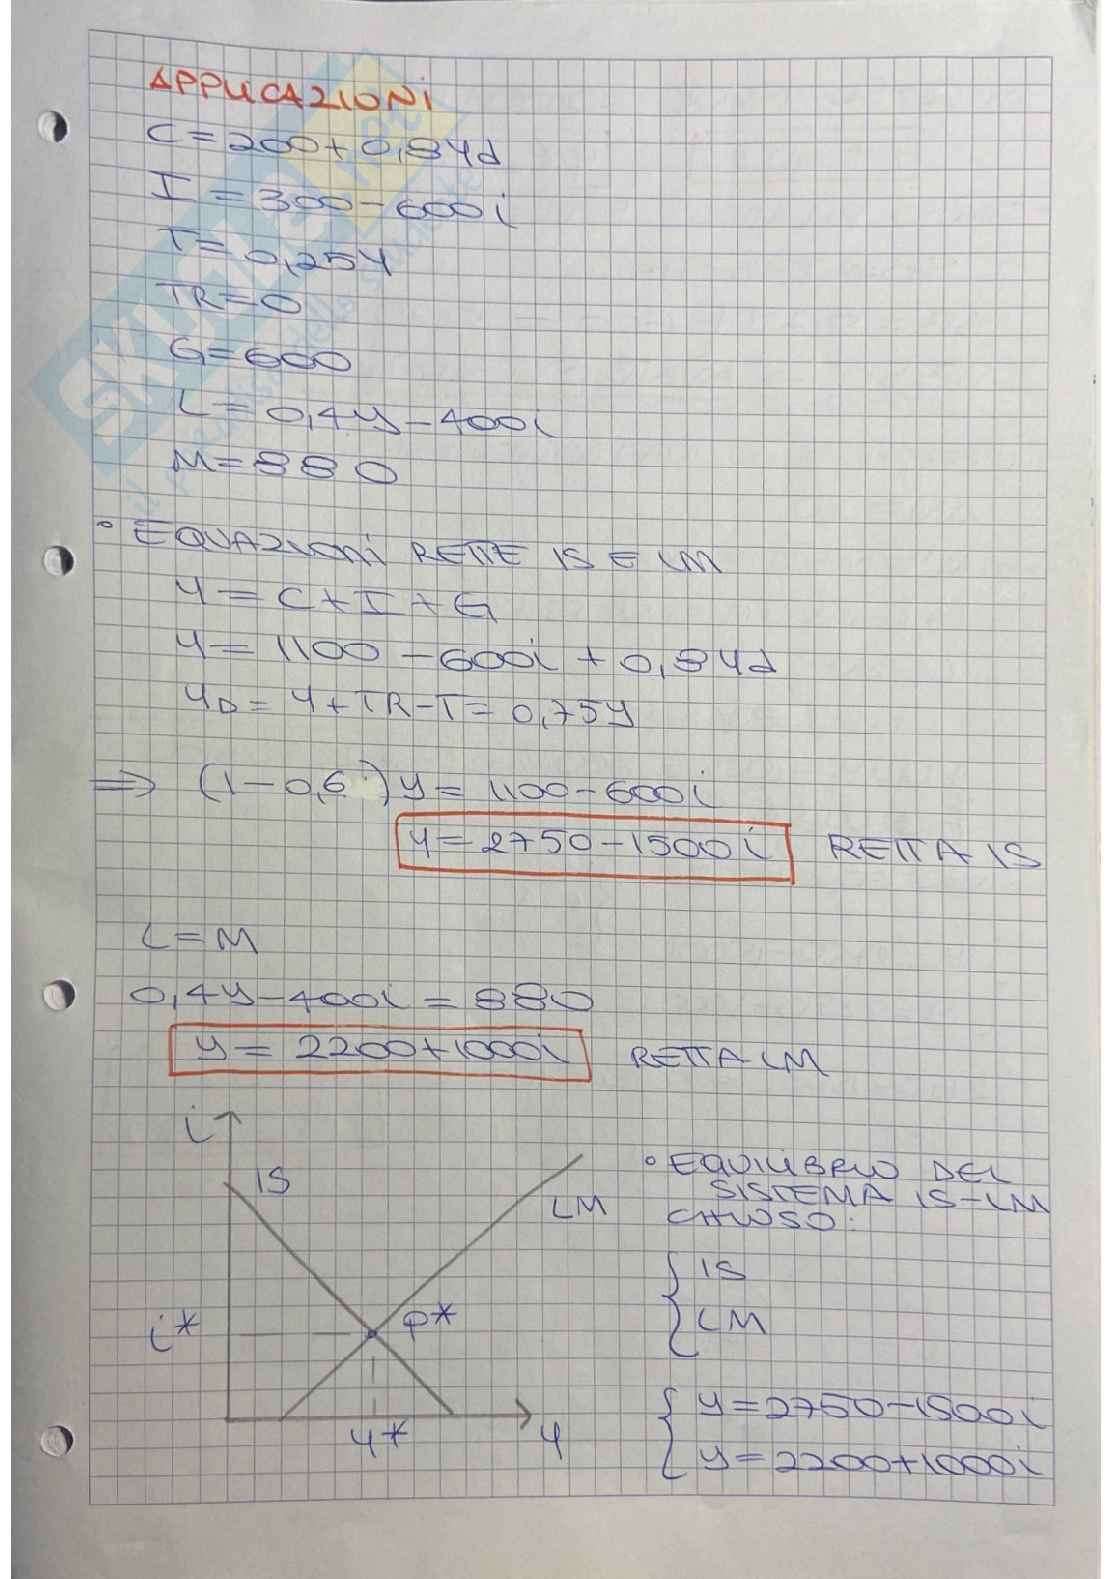 APPLICAZIONI
C = 200 + 0,8Yd
I = 300 - 600i
T = 0,25Y
TR = 0
G = 600
L = 0,4Y - 400i
M = 880
• EQUAZIONI RETTE IS E LM
Y = C + I + G
Y = 1100 - 600i + 0,8Yd
YD = Y + TR - T = 0,75Y
⇒ (1 - 0,6)Y = 1100 - 600i
Y = 2750 - 1500i RETTA IS
L = M
0,4Y - 400i = 880
Y = 2200 + 1000i RETTA LM
i
IS
LM
i*
P*
Y*
Y
• EQUILIBRIO DEL
SISTEMA IS-LM
CHIUSO:
{ IS
LM
{ Y = 2750 - 1500i
Y = 2200 + 1000i
SKUOLA.net